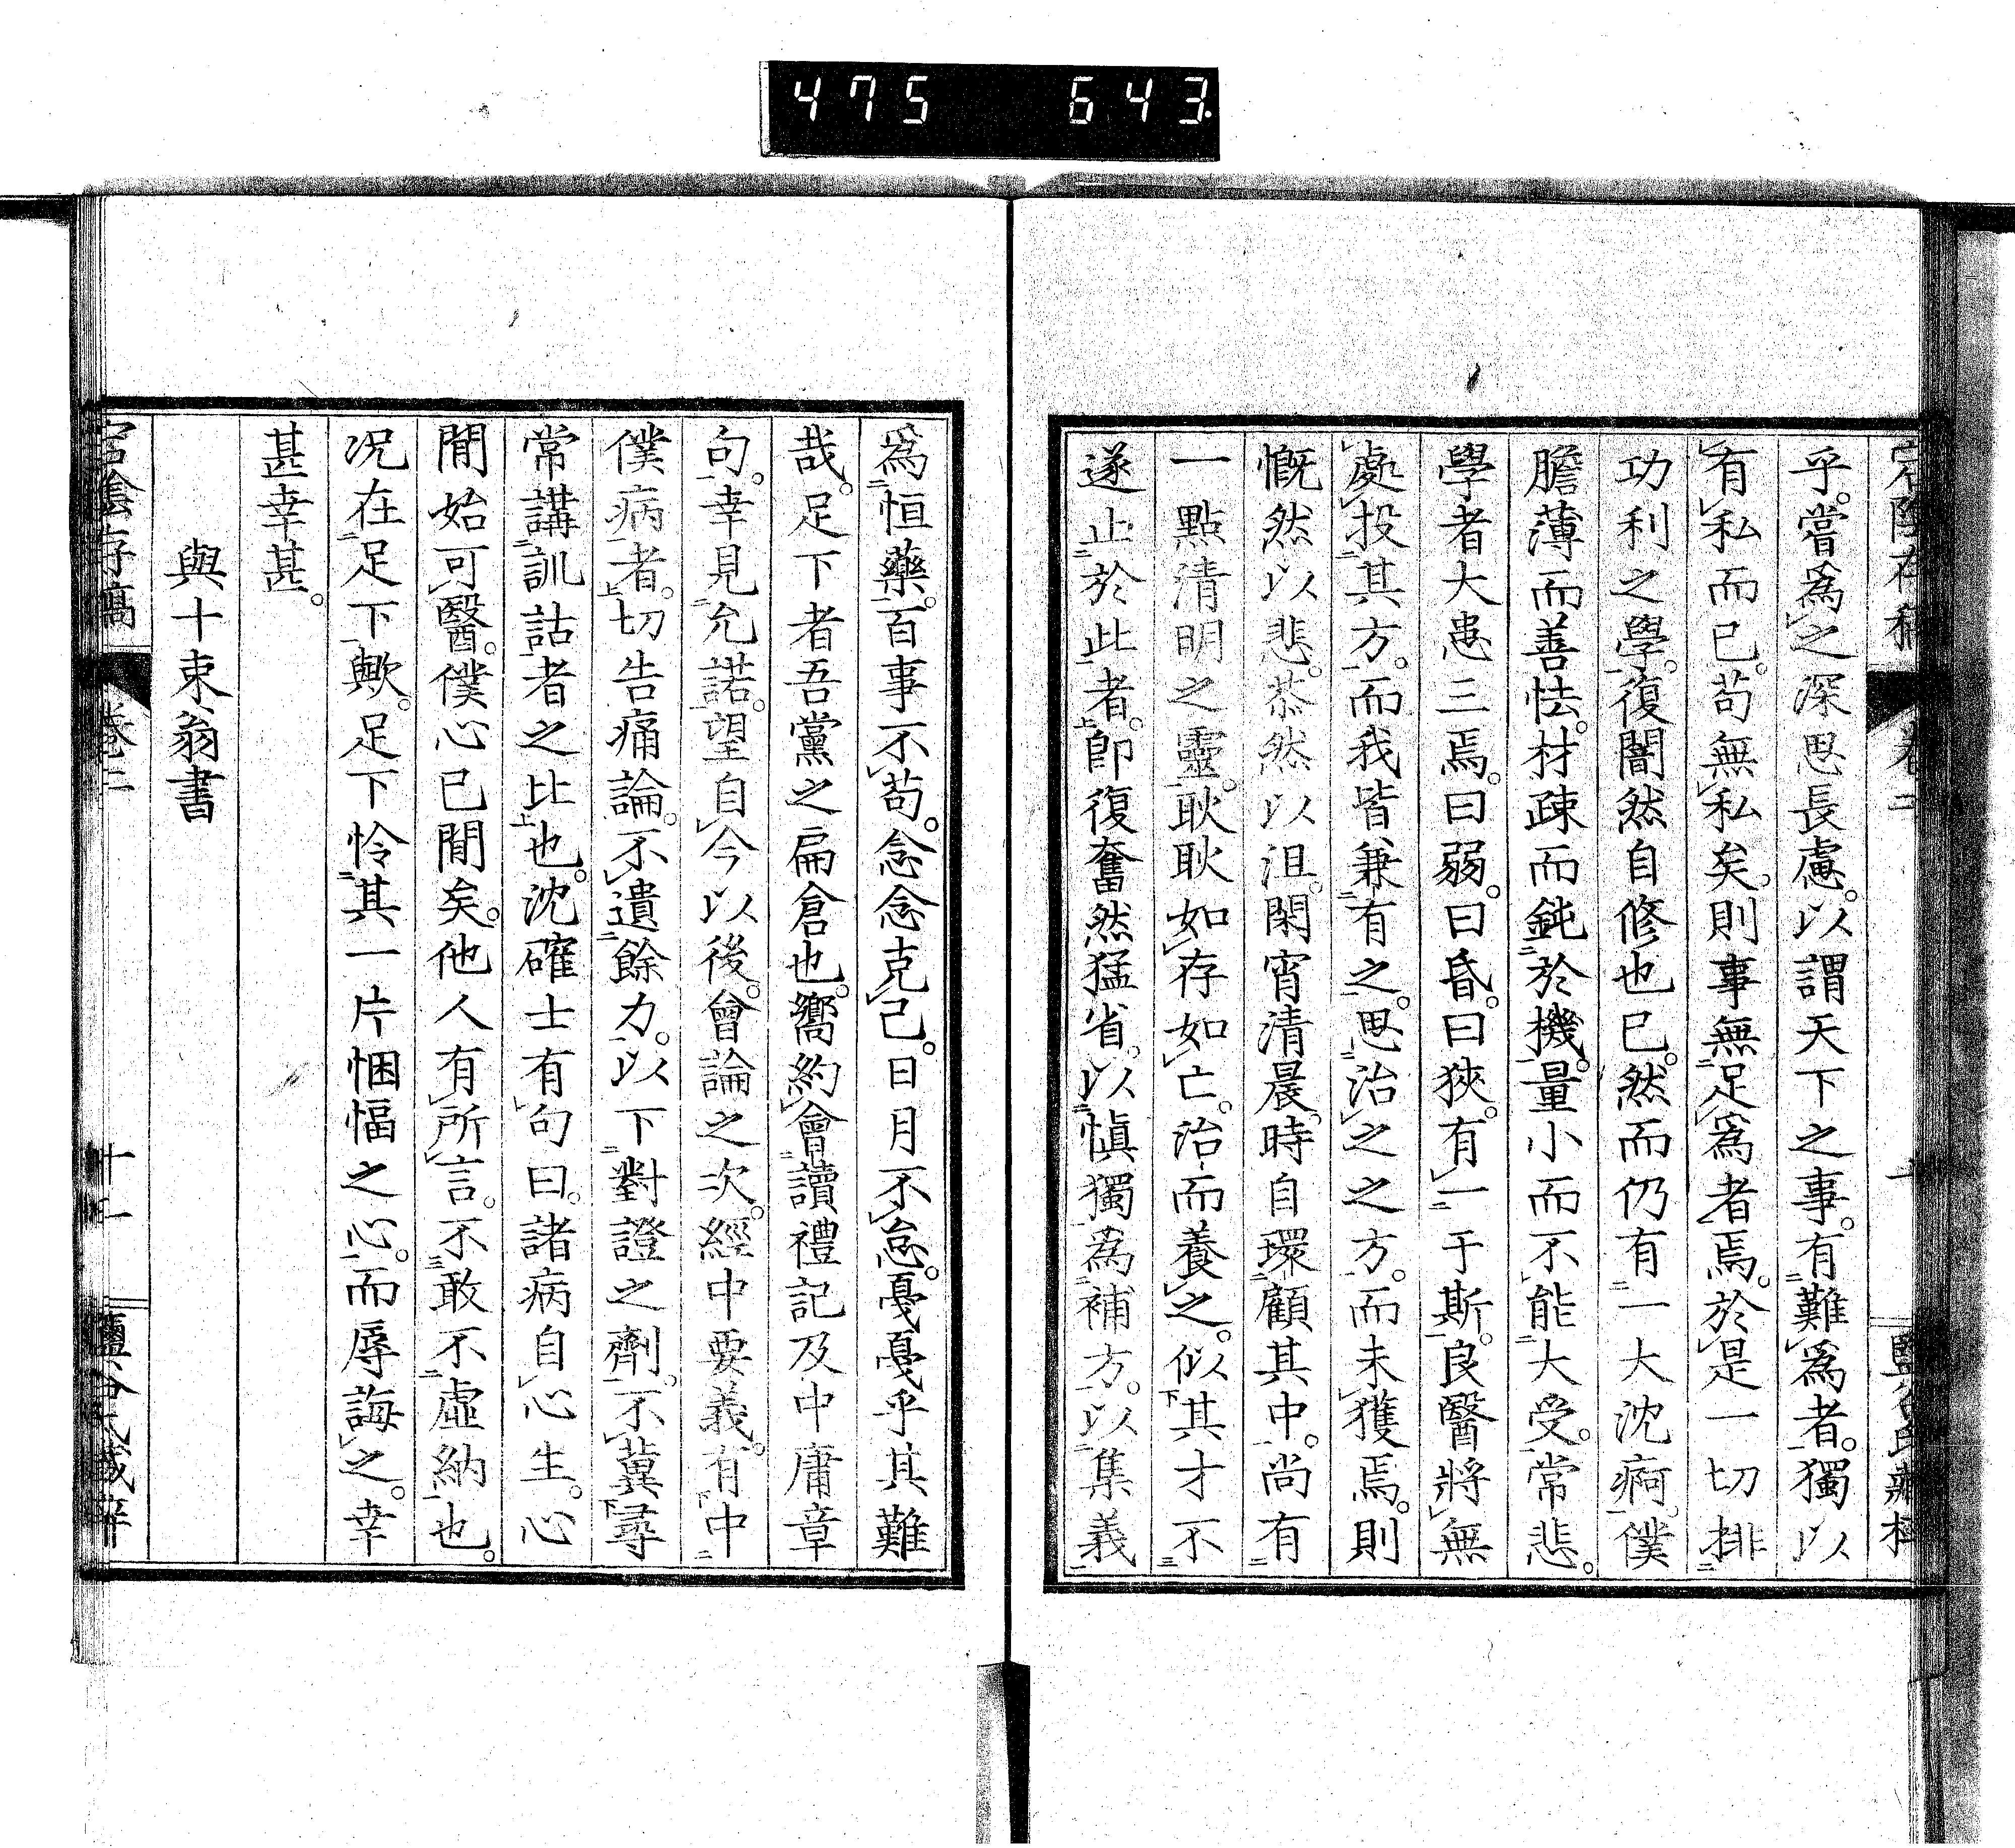 475 643.
乎。嘗爲之深思長慮。以謂天下之事。有難爲者。獨以
有私而已。苟無私矣。則事無足爲者焉。於是一切排
功利之學。復闇然自修也已。然而仍有一大沈痾。僕
膽薄而善怯。材疎而鈍於機。量小而不能大受。常悲。
學者大患三焉。曰弱。曰昏。曰狹。有一于斯。良醫將無
處投其方。而我皆兼有之。思治之之方。而未獲焉。則
慨然以悲。恭然以沮。閑宵清晨。時自環顧其中。尚有
一點清明之靈。耿耿如存如亡。治而養之。似其才不
遂止於此者。卽復奮然猛省。以愼獨爲補方。以集義
爲恒藥。百事不苟。念念克己。日月不怠。戞戞乎其難
哉。足下者吾黨之扁倉也。嚮約會讀禮記及中庸章
句。幸見允諾。望自今以後。會論之次。經中要義。有中
僕病者。切告痛論。不遺餘力。以下對證之劑。不冀尋
常講訓詁者之比也。沈確士有句曰。諸病自心生。心
閒始可醫。僕心已閒矣。他人有所言。不敢不虛納也。
況在足下歟。足下怜其一片悃愊之心。而辱誨之。幸
甚幸甚。
與十束翁書
宕陰存稿 卷二 十二